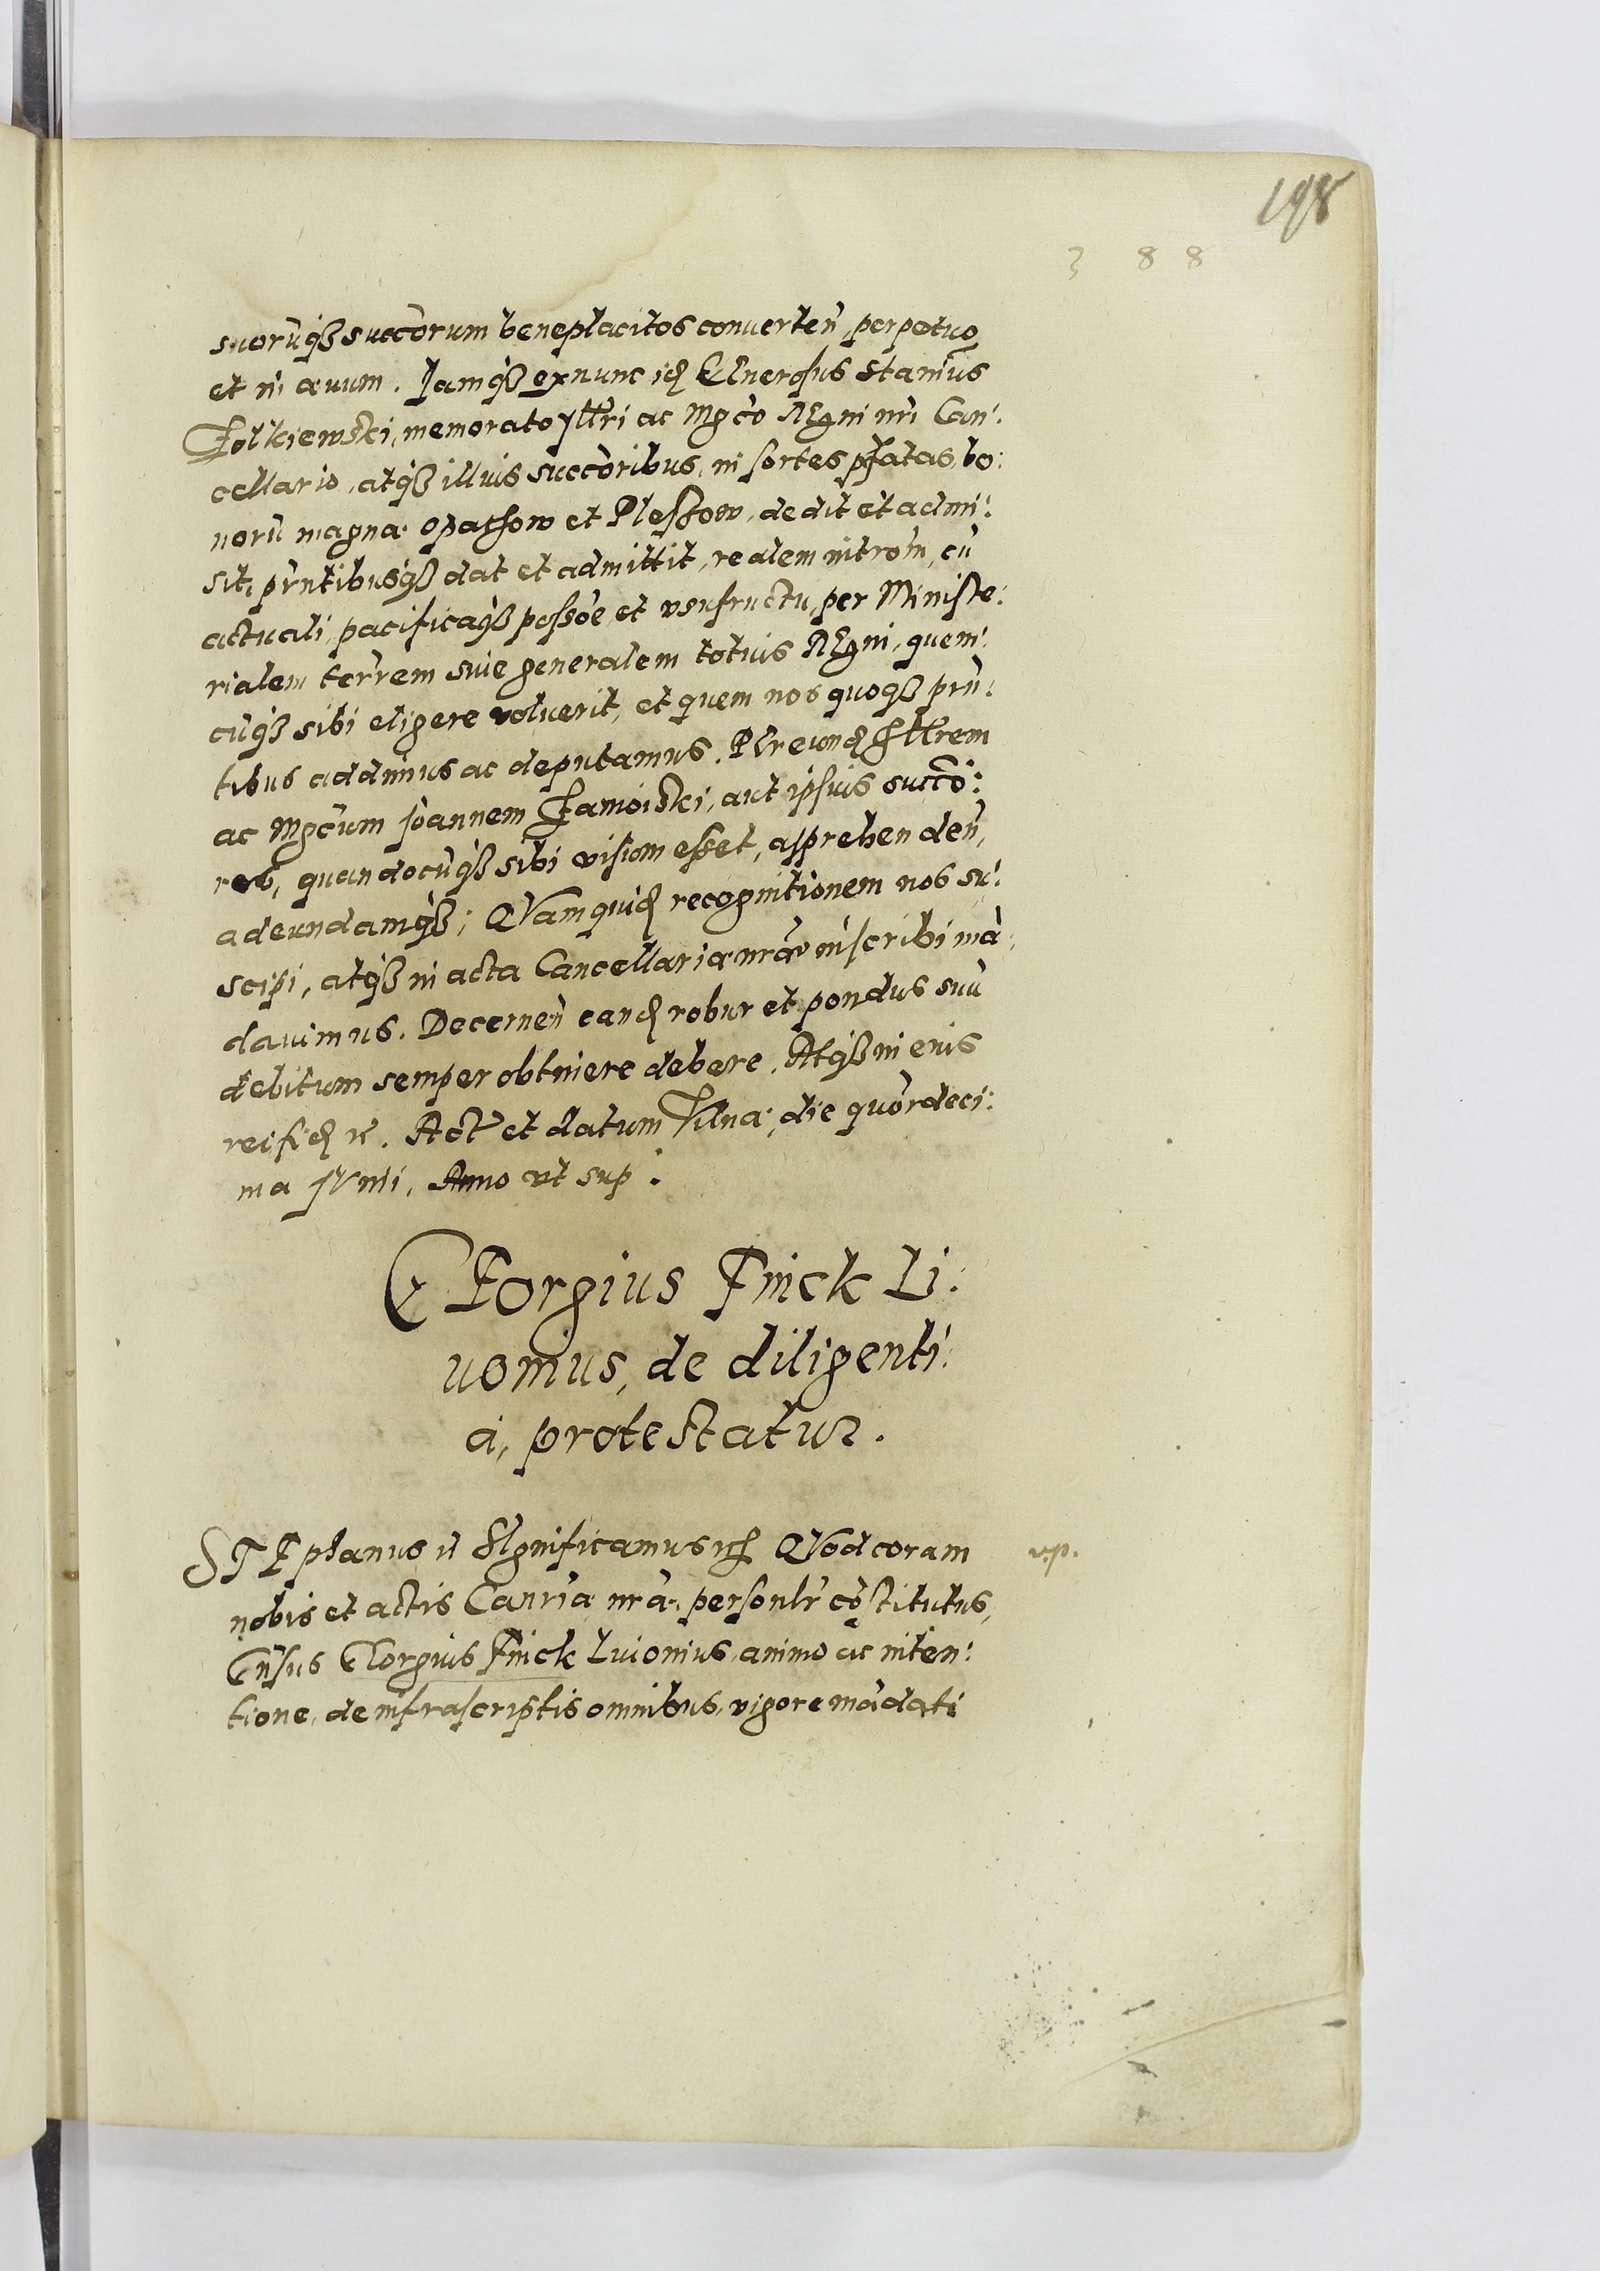 198
3 8 8
suorūq₃ succorum beneplacitos conuerteñ, perpetuo
et in æuum. Iamq₃ ex nunc id GEnerosus Stanius
Zolkiewski, memorato Illri ac Mgco REgni nri Can:
cellario, atq₃ illius succoribus, in sortes pfatas, bo:
norū magna: Opatzow et Pleszow, dedit et admi:
sit, pñtibusq₃ dat et admittit, realem introm, cū
actuali, pacificaq₃ possoe, et vsufructu, per Ministe:
rialem terrem siue generalem totius REgni, quem:
cūq₃ sibi eligere voluerit, et quem nos quoq₃ prñ:
tibus addimus ac deputamus. PEr eund Illrem
ac Mgcum Ioannem Zamoiski, aut ipsius succo:
res, quandocūq₃ sibi visum esset, apprehendeñ,
adeundamq₃; QVam quid recognitionem nos su:
scipi, atq₃ in acta Cancellariæ nræ inscribi mā:
dauimus. Decerneñ eand robur et pondus suū
debitum semper obtinere debere. Atq₃ in eius
rei fid etc. Act et datum Vilna: die quordeci:
ma IVnii, Anno vt sup:
GEorgius Finck Li:
uonius, de diligenti:
a, protestatur.
STEphanus etc SIgnificamus etc QVod coram
v.p.
nobis et actis Canria nra: personlr cōstitutus,
Gnsus GEorgius Finck Liuonius, animo ac inten:
tione, de infrascriptis omnibus, vigore mādati